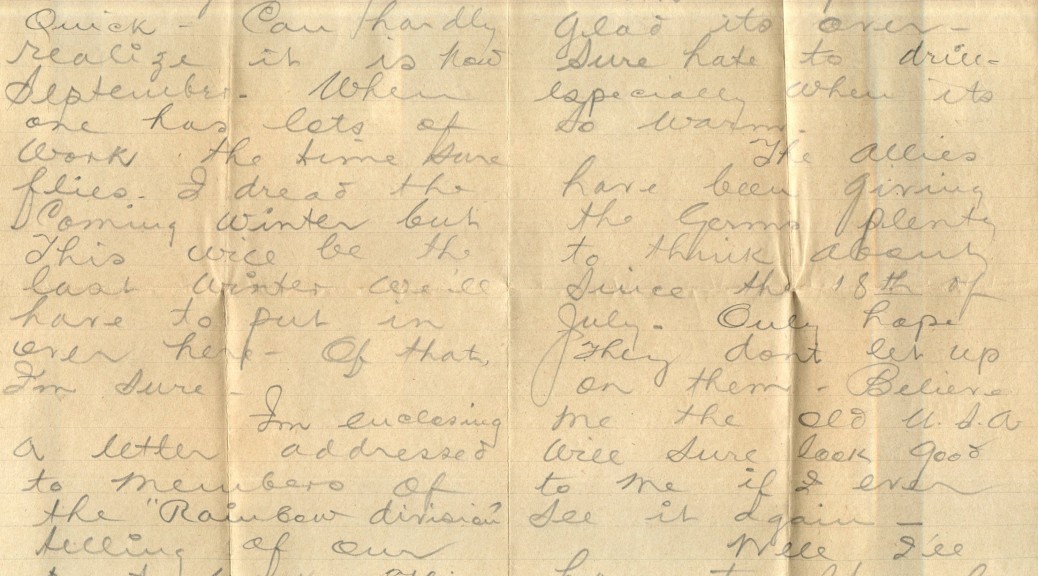 Quick - Can hardly
realize it is now
September. When
one has lots of
work the time sure
flies. I dread the
Coming winter but
This will be the
last winter we'll
have to put in
over here - Of that,
I'm sure -
I'm enclosing
a letter addressed
to members of
the "Rainbow division"
telling of our
Glad its over -
Sure hate to drill -
especially when its
so warm.
The allies
have been giving
the Germs plenty
to think about
Since the 18th of
July. Only hope
They dont let up
on them - Believe
me the old U.S.A
will sure look good
to me if I ever
See it again -
Well I'll